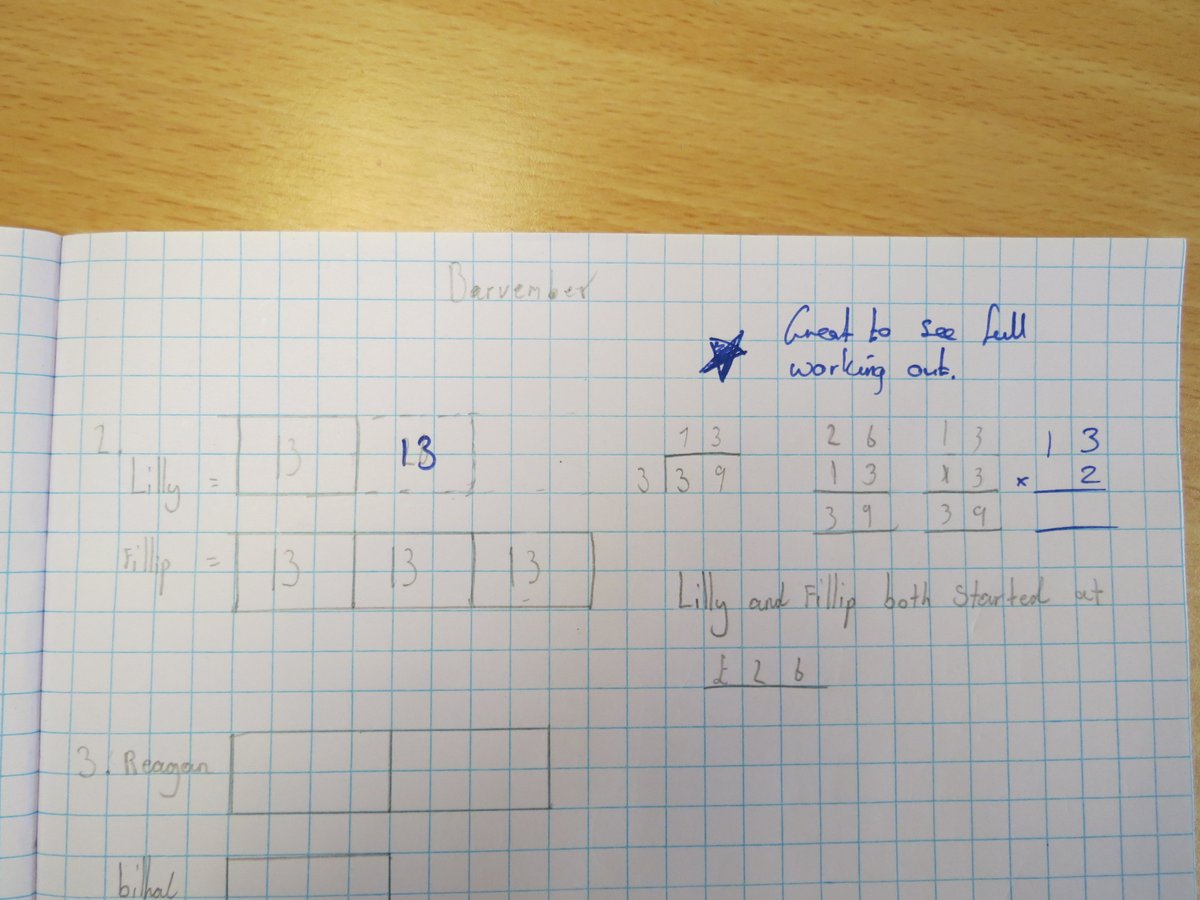 Barvember
Great to see full
working out.
2.
Lilly = 13 13
Fillip = 13 13 13
13
3 39
26
13
39
13
13
39
13
× 2
Lilly and Fillip both started at
£26
3. Reagan
bilhal